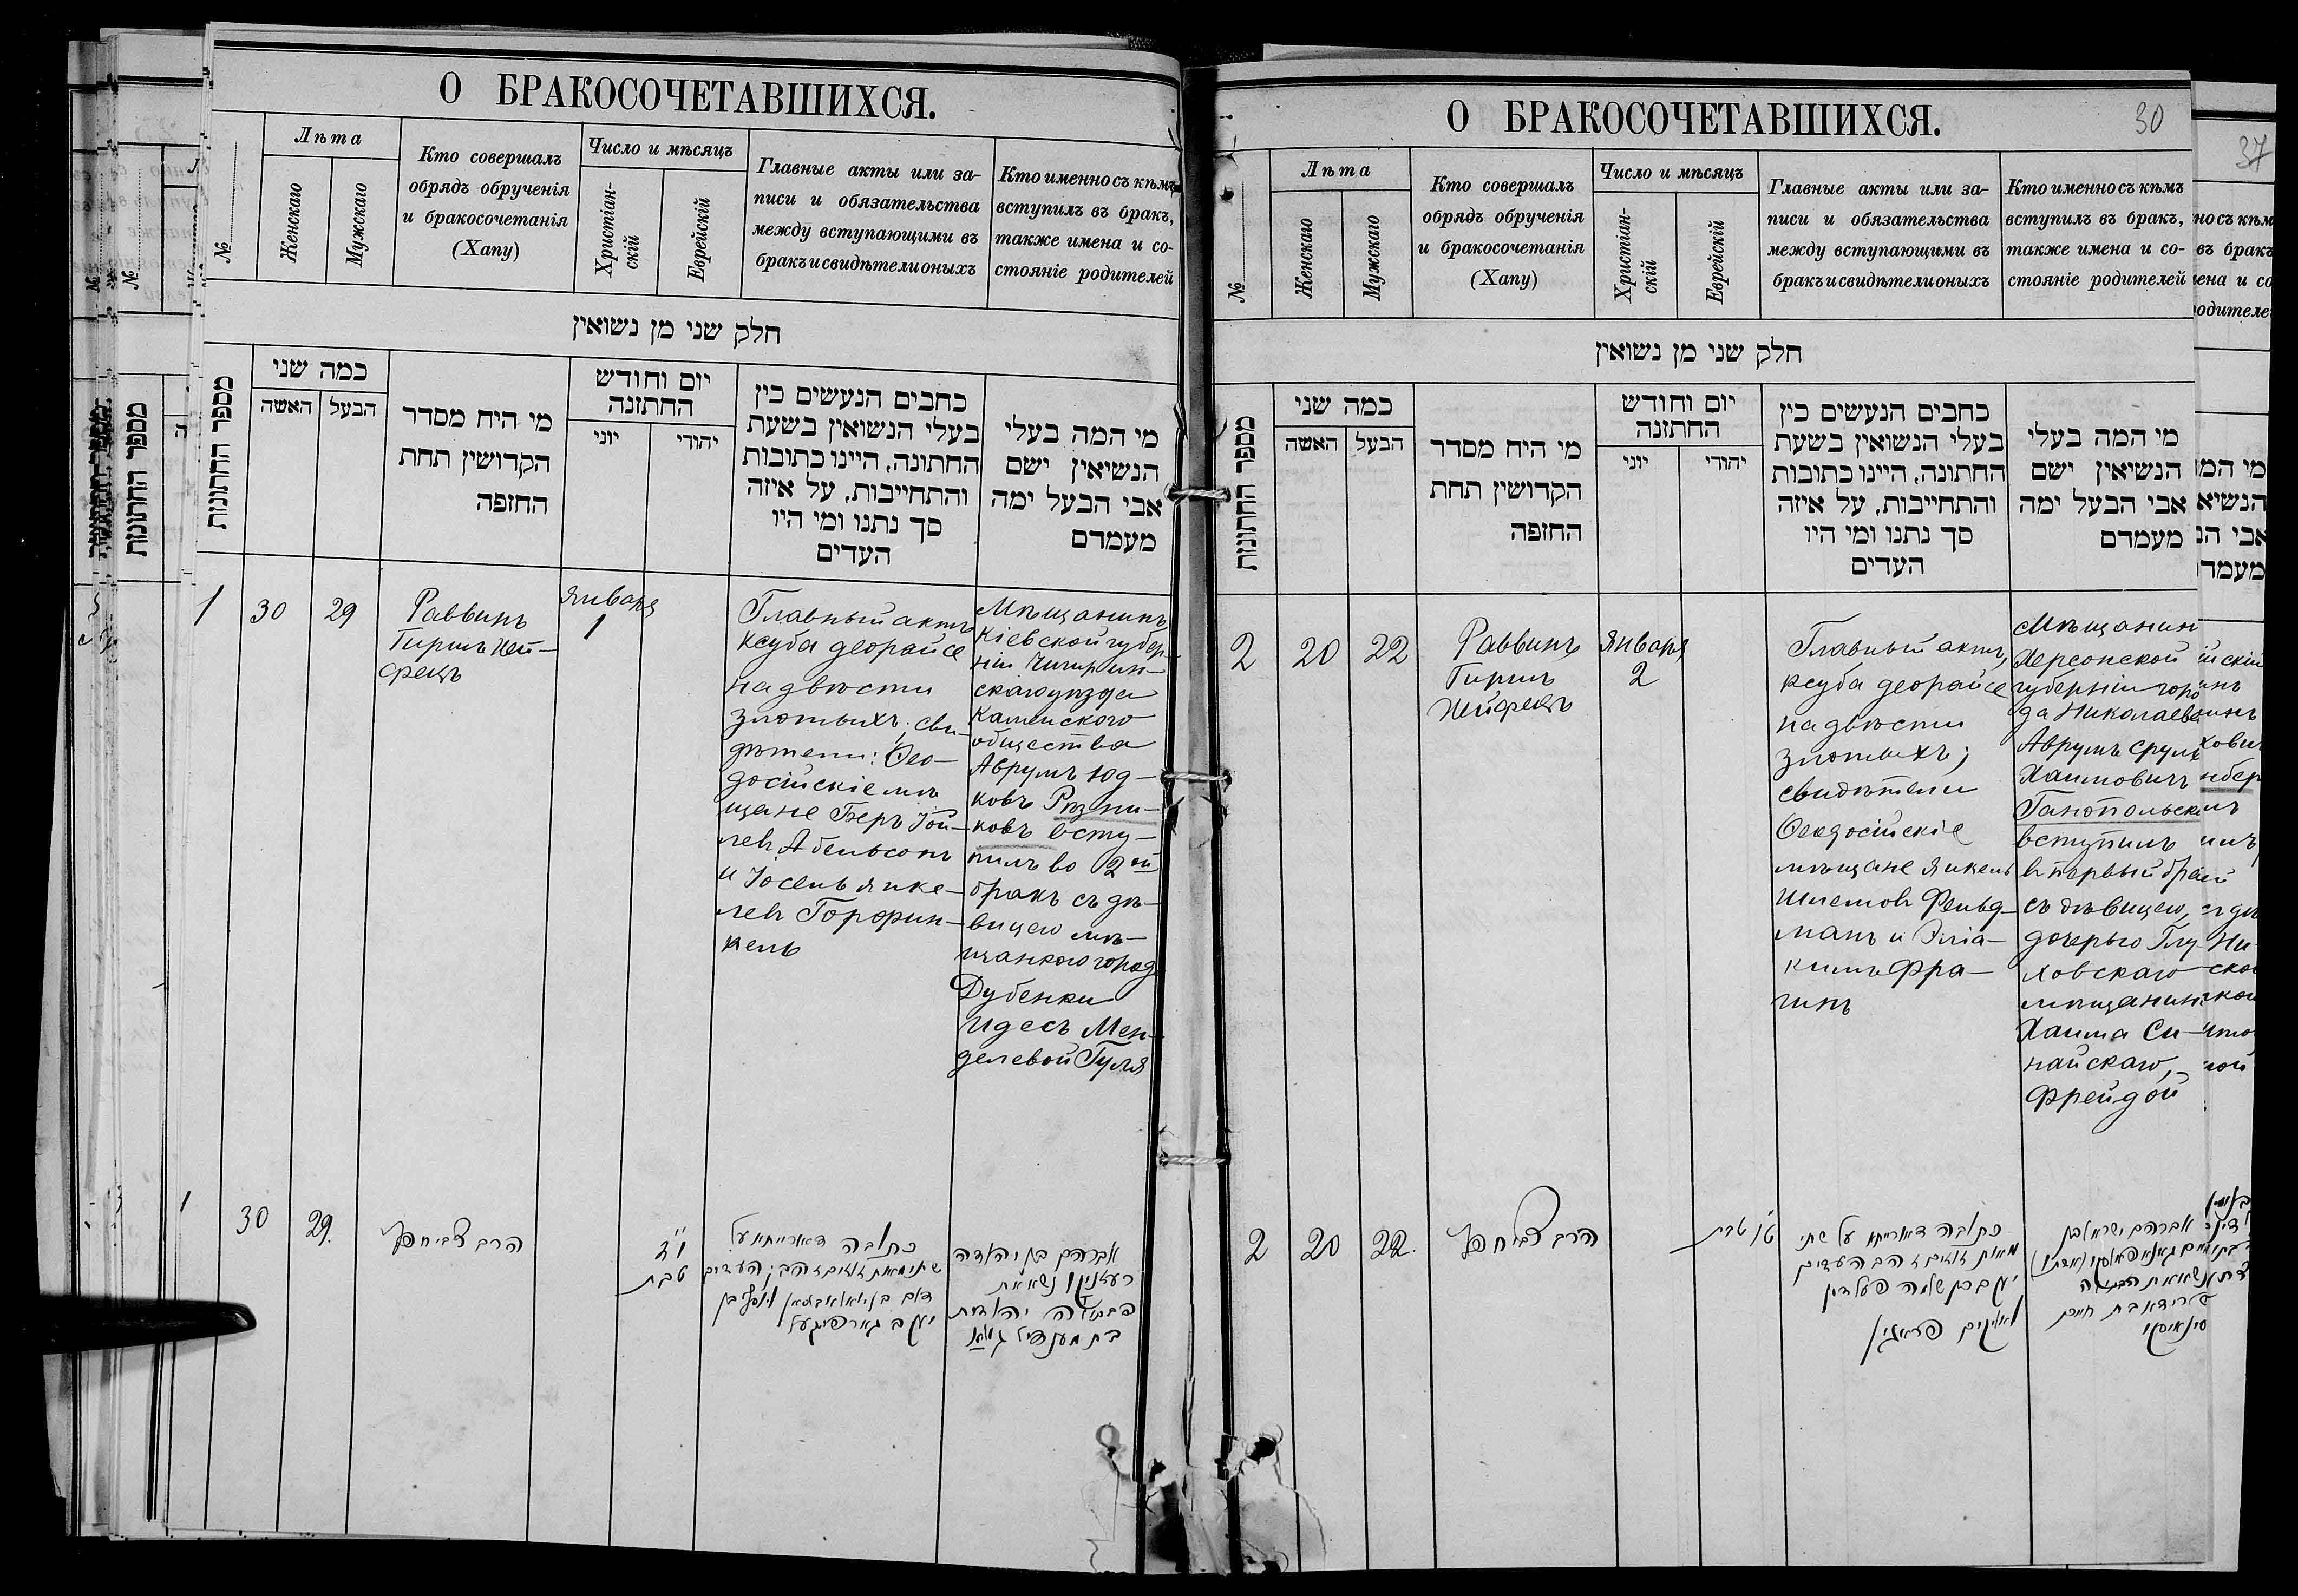 О БРАКОСОЧЕТАВШИХСЯ.
№
Лѣта
Женскаго
Мужскаго
Кто совершалъ
обрядъ обрученія
и бракосочетанія
(Хапу)
Число и мѣсяцъ
Христіан-
скій
Еврейскій
Главные акты или за-
писи и обязательства
между вступающими въ
бракъ и свидѣтели оныхъ
Кто именно съ кѣмъ
вступилъ въ бракъ,
также имена и со-
стояніе родителей
חלק שני מן נשואין
מספר החתונות
כמה שני
האשה
הבעל
מי היח מסדר
הקדושין תחת
החזפה
יום וחודש
החתזנה
יוני
יהודי
כחבים הנעשים כין
בעלי הנשואין בשעת
החתונה, היינו כתובות
והתחייבות, על איזה
סך נתנו ומי היו
העדים
מי המה בעלי
הנשיאין ישם
אבי הבעל ימה
מעמדם
1
30
29
Раввинъ
Гиршъ Хей-
фецъ
Января
1
Главный актъ
ксуба деорайсе
на двѣсти
злотыхъ; сви-
дѣтели: Ѳео-
досійскіе мѣ
щане Беръ Іой-
левъ Абельсонъ
и Іосель Янке-
левъ Горфин-
кель
Мѣщанинъ
Кіевской губер-
ніи Чигирин-
скаго уѣзда
Каменского
общества
Аврумъ Юд-
ковъ Рѣзни-
ковъ всту-
пилъ во 2ой
бракъ съ дѣ-
вицею мѣ-
щанкою города
Дубенки
Идесъ Мен-
делевой Гуля
1
30
29.
הרב צבי חפץ
י"ד
טבת
כתובה דאורייתא על
שתי מאות זוזים זהב; העדים
יעקב גארפינקעל
אברהם בן יהודה
רעזניקוו נשא את
הבתולה יהודית
בת מענדיל גוליא
О БРАКОСОЧЕТАВШИХСЯ.
30
№
Лѣта
Женскаго
Мужскаго
Кто совершалъ
обрядъ обрученія
и бракосочетанія
(Хапу)
Число и мѣсяцъ
Христіан-
скій
Еврейскій
Главные акты или за-
писи и обязательства
между вступающими въ
бракъ и свидѣтели оныхъ
Кто именно съ кѣмъ
вступилъ въ бракъ,
также имена и со-
стояніе родителей
חלק שני מן נשואין
מספר החתונות
כמה שני
האשה
הבעל
מי היח מסדר
הקדושין תחת
החזפה
יום וחודש
החתזנה
יוני
יהודי
כחבים הנעשים כין
בעלי הנשואין בשעת
החתונה, היינו כתובות
והתחייבות, על איזה
סך נתנו ומי היו
העדים
מי המה בעלי
הנשיאין ישם
אבי הבעל ימה
מעמדם
2
20
22
Раввинъ
Гиршъ
Хейфецъ
Января
2
Главный актъ,
ксуба деорайсе
на двѣсти
злотыхъ;
свидѣтели
Ѳеодосійскіе
мѣщане Янкель
Шлемовъ Фельд-
манъ и Эліа-
кимъ Фра-
гинъ
Мѣщанин
Херсонской
губерніи горо
да Николаева
Аврумъ Сруль
Хаимовичъ
Ганопольскій
вступилъ
въ первый бра
съ дѣвицею,
дочерью Глу-
ховскаго
мѣщанина
Хаима Си-
найскаго,
Фрейдой
2
20
22.
הרב צבי חפץ
ט"ו טבת
כתובה דאורייתא על שתי
מאות זוזים זהב העדים
יעקב בן שלמה פעלדמן
ואליקים פראגין
אברהם ישראל בן
פריידא בת חיים
סינאיסקי
37